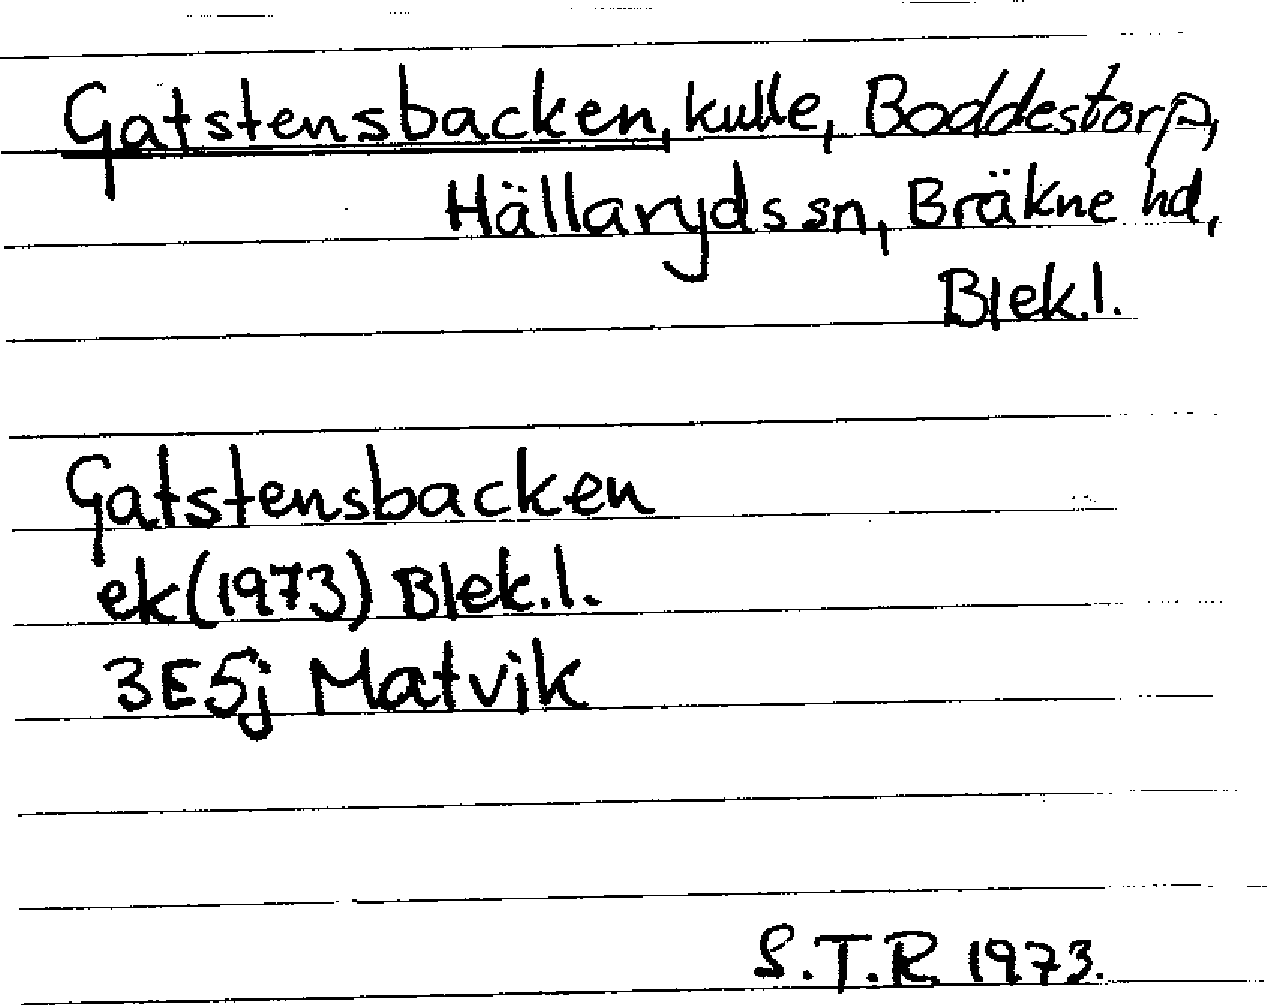 Gatstensbacken, kulle, Boddestorp,
Hällaryds sn, Bräkne hd,
Blek.l.
Gatstensbacken
ek (1973) Blek.l.
3E5j Matvik
S.T.R. 1973.